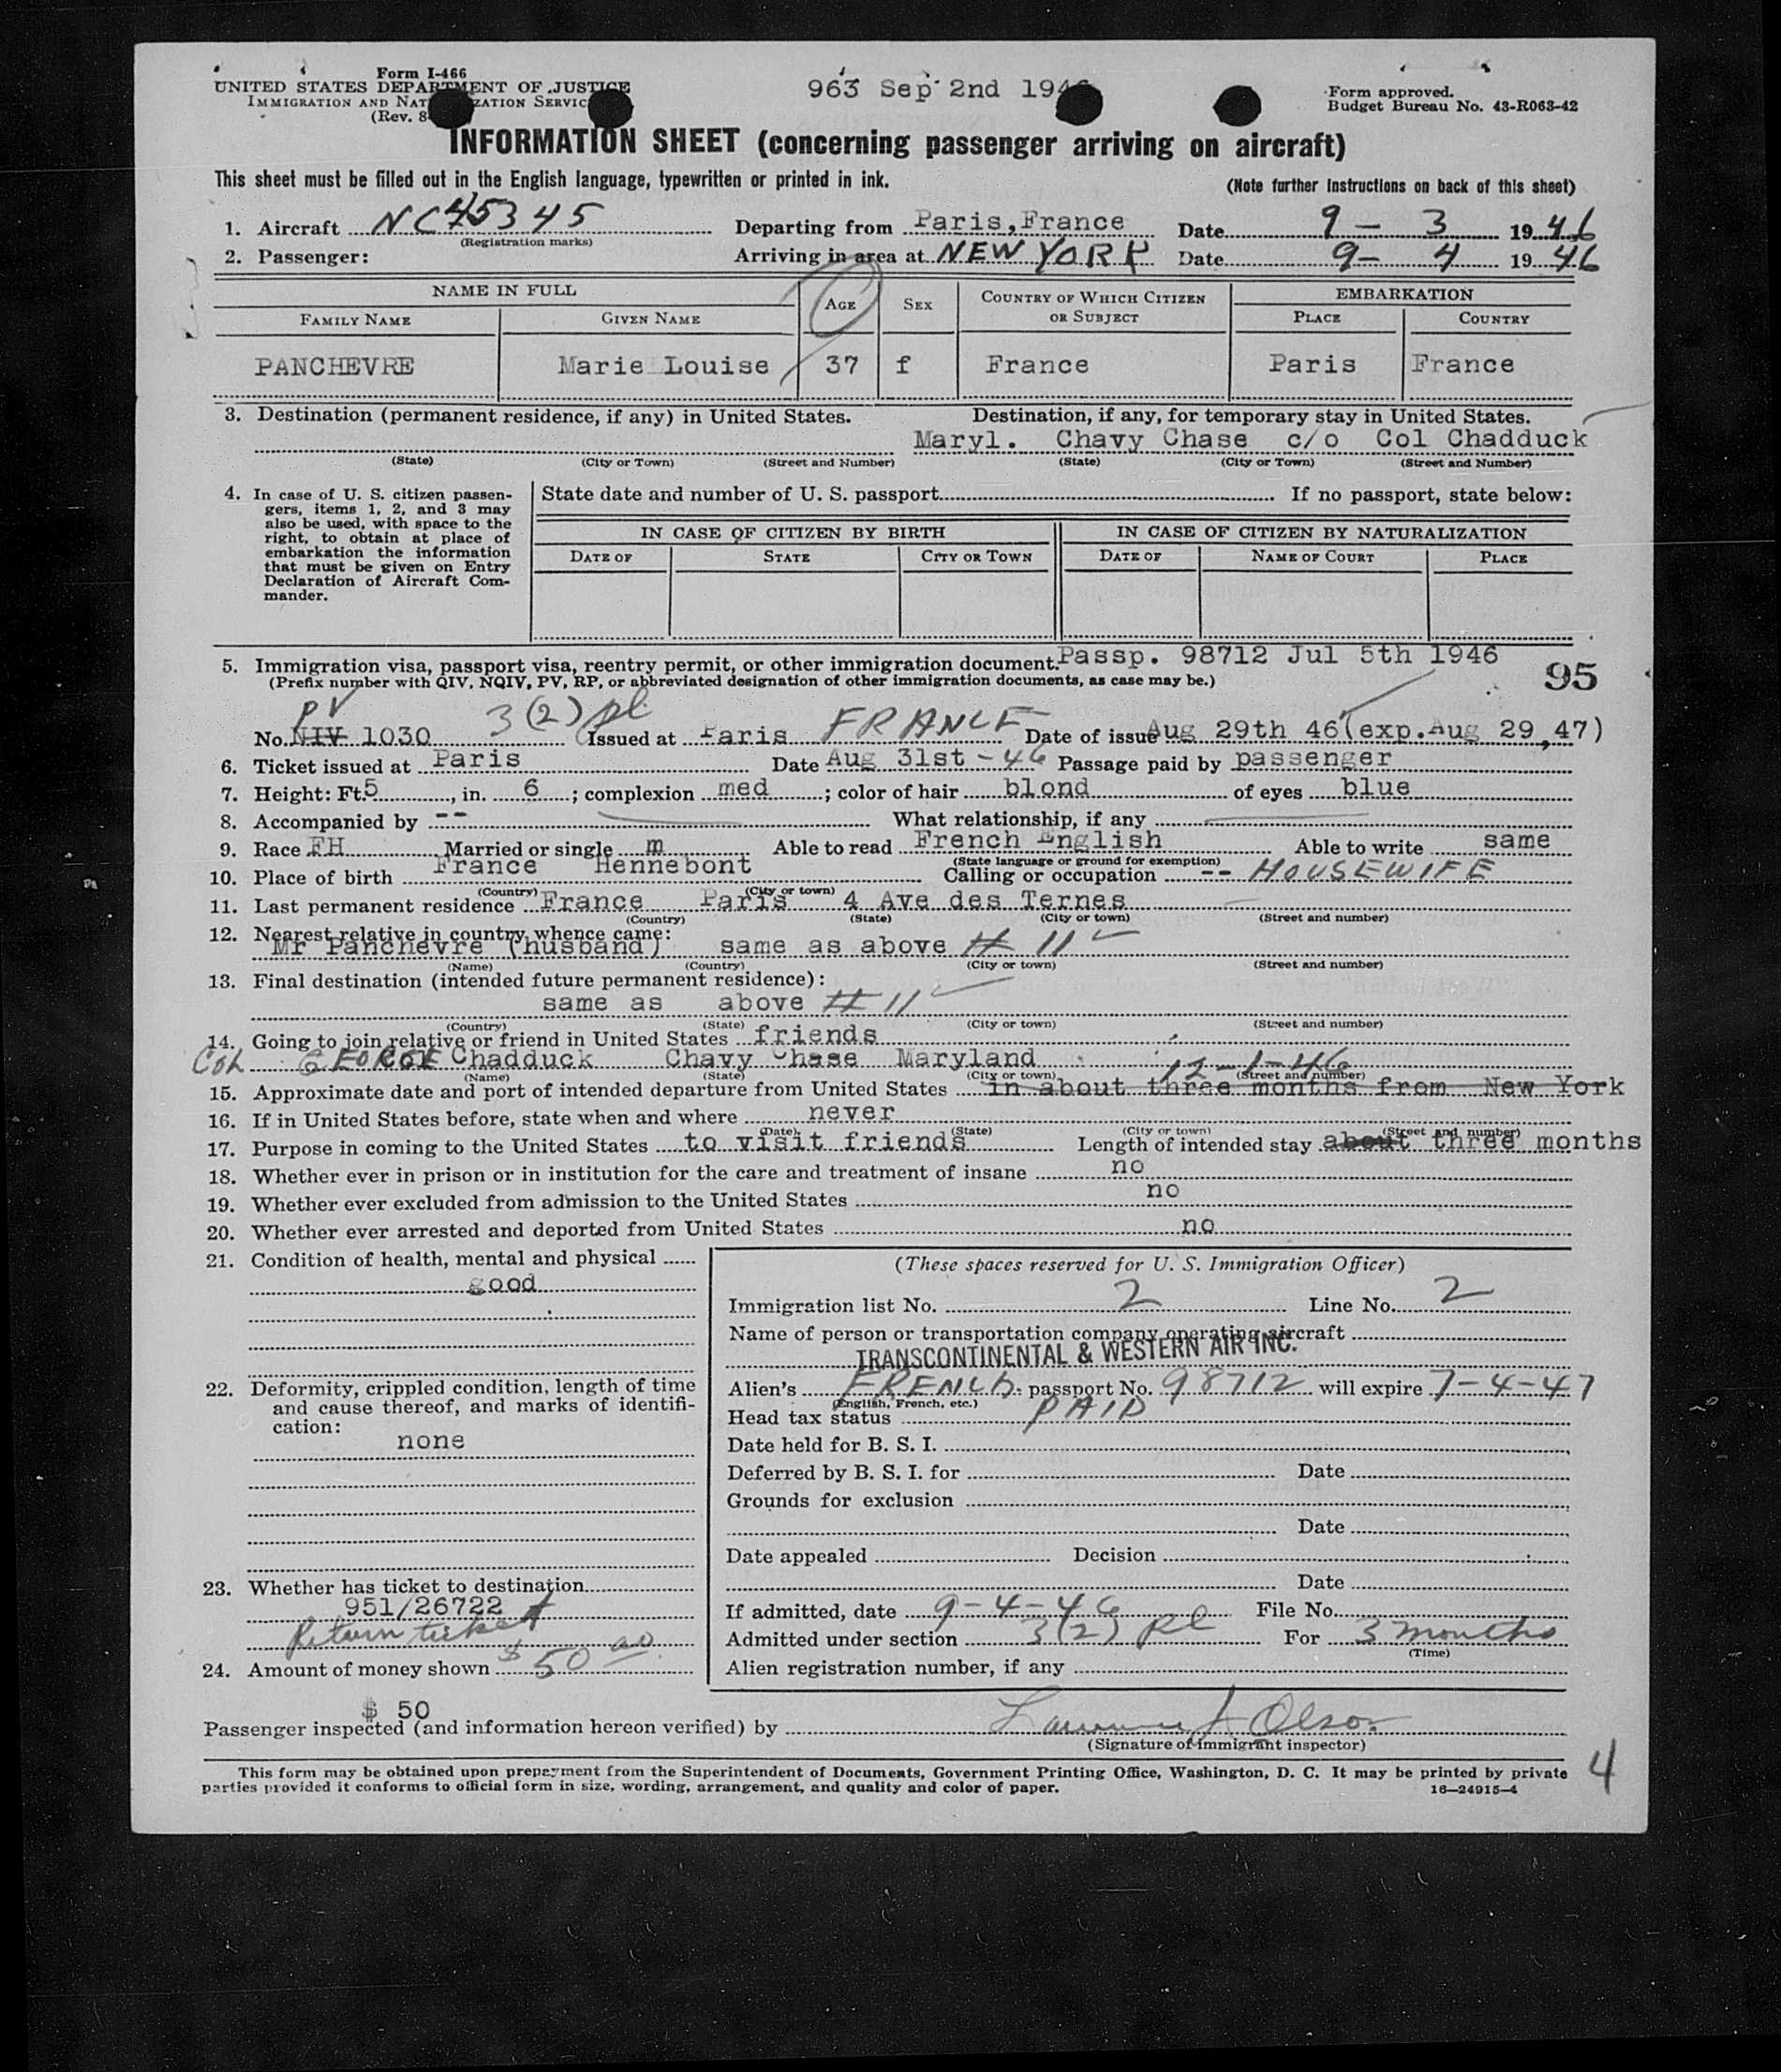 Form I-466
UNITED STATES DEPARTMENT OF JUSTICE 963 Sep 2nd 1946 Form approved.
IMMIGRATION AND NATURALIZATION SERVICE Budget Bureau No. 43-R063-42
(Rev. 8-
INFORMATION SHEET (concerning passenger arriving on aircraft)
This sheet must be filled out in the English language, typewritten or printed in ink. (Note further instructions on back of this sheet)
1. Aircraft NC45345 Departing from Paris,France Date 9-3 1946
(Registration marks)
2. Passenger: Arriving in area at NEW YORK Date 9-4 1946
NAME IN FULL AGE SEX COUNTRY OF WHICH CITIZEN OR SUBJECT EMBARKATION
FAMILY NAME GIVEN NAME PLACE COUNTRY
PANCHEVRE Marie Louise 37 f France Paris France
3. Destination (permanent residence, if any) in United States. Destination, if any, for temporary stay in United States.
Maryl. Chavy Chase c/o Col Chadduck
(State) (City or Town) (Street and Number) (State) (City or Town) (Street and Number)
4. In case of U. S. citizen passen-
gers, items 1, 2, and 3 may
also be used, with space to the
right, to obtain at place of
embarkation the information
that must be given on Entry
Declaration of Aircraft Com-
mander.
State date and number of U. S. passport If no passport, state below:
IN CASE OF CITIZEN BY BIRTH IN CASE OF CITIZEN BY NATURALIZATION
DATE OF STATE CITY OR TOWN DATE OF NAME OF COURT PLACE
5. Immigration visa, passport visa, reentry permit, or other immigration document. Passp. 98712 Jul 5th 1946
(Prefix number with QIV, NQIV, PV, RP, or abbreviated designation of other immigration documents, as case may be.) 95
PV 3(2) pl
No. NIV 1030 Issued at Paris FRANCE Date of issue Aug 29th 46 (exp.Aug 29,47)
6. Ticket issued at Paris Date Aug 31st - 46 Passage paid by passenger
7. Height: Ft. 5, in. 6; complexion med; color of hair blond of eyes blue
8. Accompanied by -- What relationship, if any
9. Race FH Married or single m Able to read French English Able to write same
(State language or ground for exemption)
10. Place of birth France Hennebont Calling or occupation -- HOUSEWIFE
(Country) (City or town)
11. Last permanent residence France Paris 4 Ave des Ternes
(Country) (State) (City or town) (Street and number)
12. Nearest relative in country whence came:
Mr Panchevre (husband) same as above # 11
(Name) (Country) (City or town) (Street and number)
13. Final destination (intended future permanent residence):
same as above # 11
(Country) (State) (City or town) (Street and number)
14. Going to join relative or friend in United States friends
Col GEORGE Col Chadduck Chavy Chase Maryland 12-1-46
(Name) (State) (City or town) (Street and number)
15. Approximate date and port of intended departure from United States in about three months from New York
16. If in United States before, state when and where never
(Date) (State) (City or town) (Street and number)
17. Purpose in coming to the United States to visit friends Length of intended stay about three months
18. Whether ever in prison or in institution for the care and treatment of insane no
19. Whether ever excluded from admission to the United States no
20. Whether ever arrested and deported from United States no
21. Condition of health, mental and physical
good
22. Deformity, crippled condition, length of time
and cause thereof, and marks of identifi-
cation:
none
23. Whether has ticket to destination
951/26722
Return ticket
24. Amount of money shown $50 00
$ 50
(These spaces reserved for U. S. Immigration Officer)
Immigration list No. 2 Line No. 2
Name of person or transportation company operating aircraft
TRANSCONTINENTAL & WESTERN AIR INC.
Alien's FRENCH passport No. 98712 will expire 7-4-47
(English, French, etc.)
Head tax status PAID
Date held for B. S. I.
Deferred by B. S. I. for Date
Grounds for exclusion
Date
Date appealed Decision
Date
If admitted, date 9-4-46 File No.
Admitted under section 3(2) Pl For 3 months
(Time)
Alien registration number, if any
Passenger inspected (and information hereon verified) by Olson
(Signature of immigrant inspector)
This form may be obtained upon prepayment from the Superintendent of Documents, Government Printing Office, Washington, D. C. It may be printed by private
parties provided it conforms to official form in size, wording, arrangement, and quality and color of paper. 16—24915-4
4